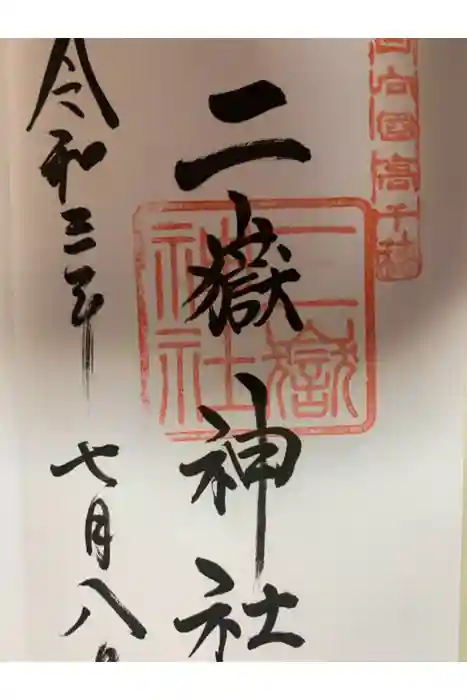 日向國高千穂
二嶽神社
二嶽神社
令和三年七月八日